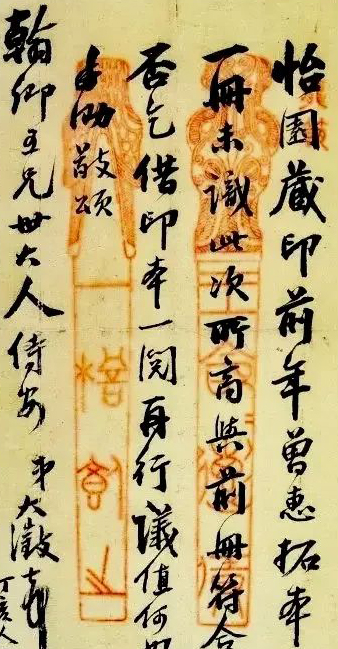 怡園藏印前年曾惠拓本
一冊未識此次所商與前冊符合
否乞借印本一閱再行議值何如
手泐敬頌
翰卿五兄世大人侍安 弟大澂頓首
丁亥人